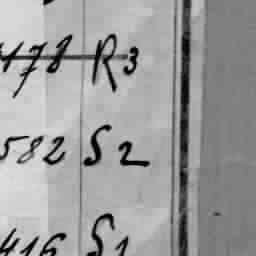 478 R3
582 S2
416 S1